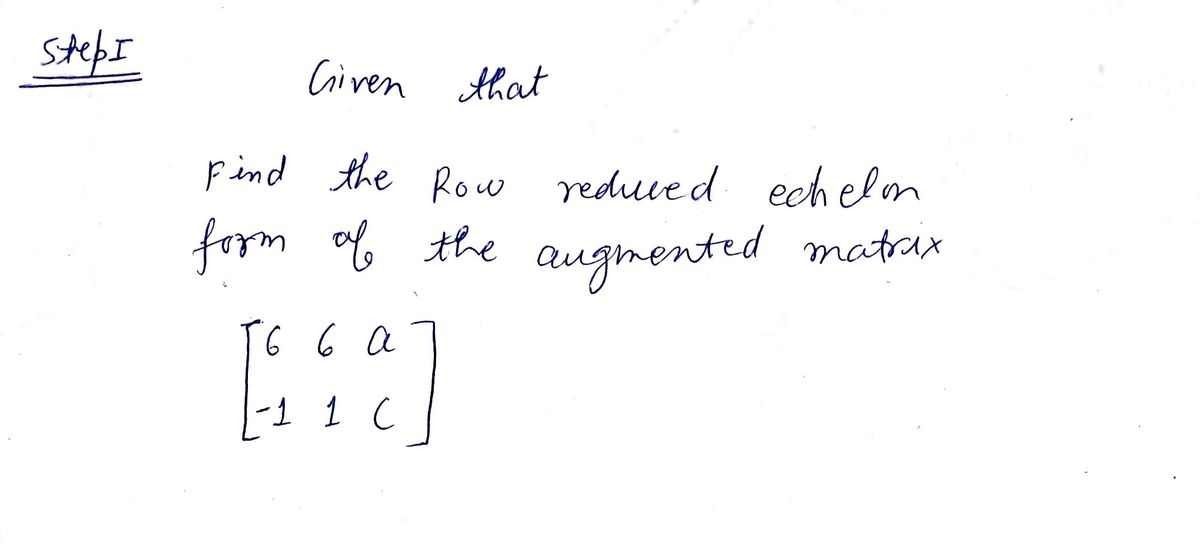 Step I
Given that
Find the Row reduced echelon
form of the augmented matrix
[6 6 a
-1 1 c]